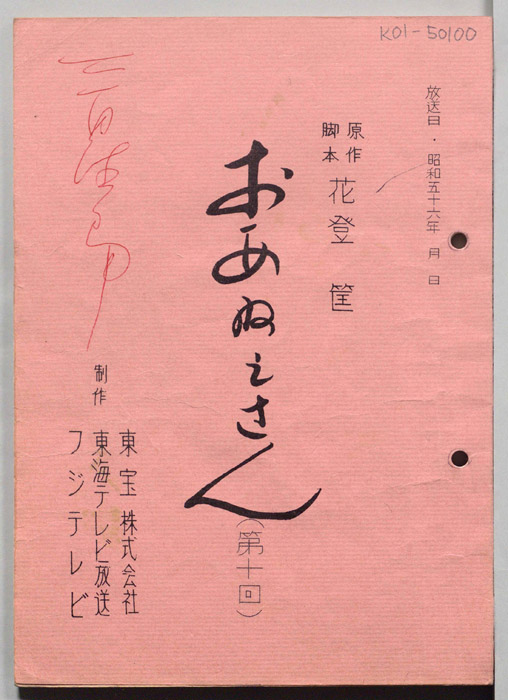 K01-50100
放送日・昭和五十六年 月 日
原作
脚本
花登 筺
おあねえさん
(第十回)
制作
東宝株式会社
東海テレビ放送
フジテレビ